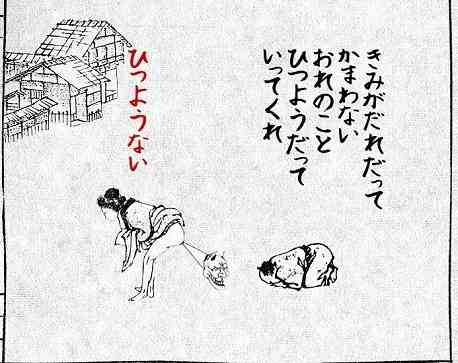 きみがだれだって
かまわない
おれのこと
ひつようだって
いってくれ
ひつようない